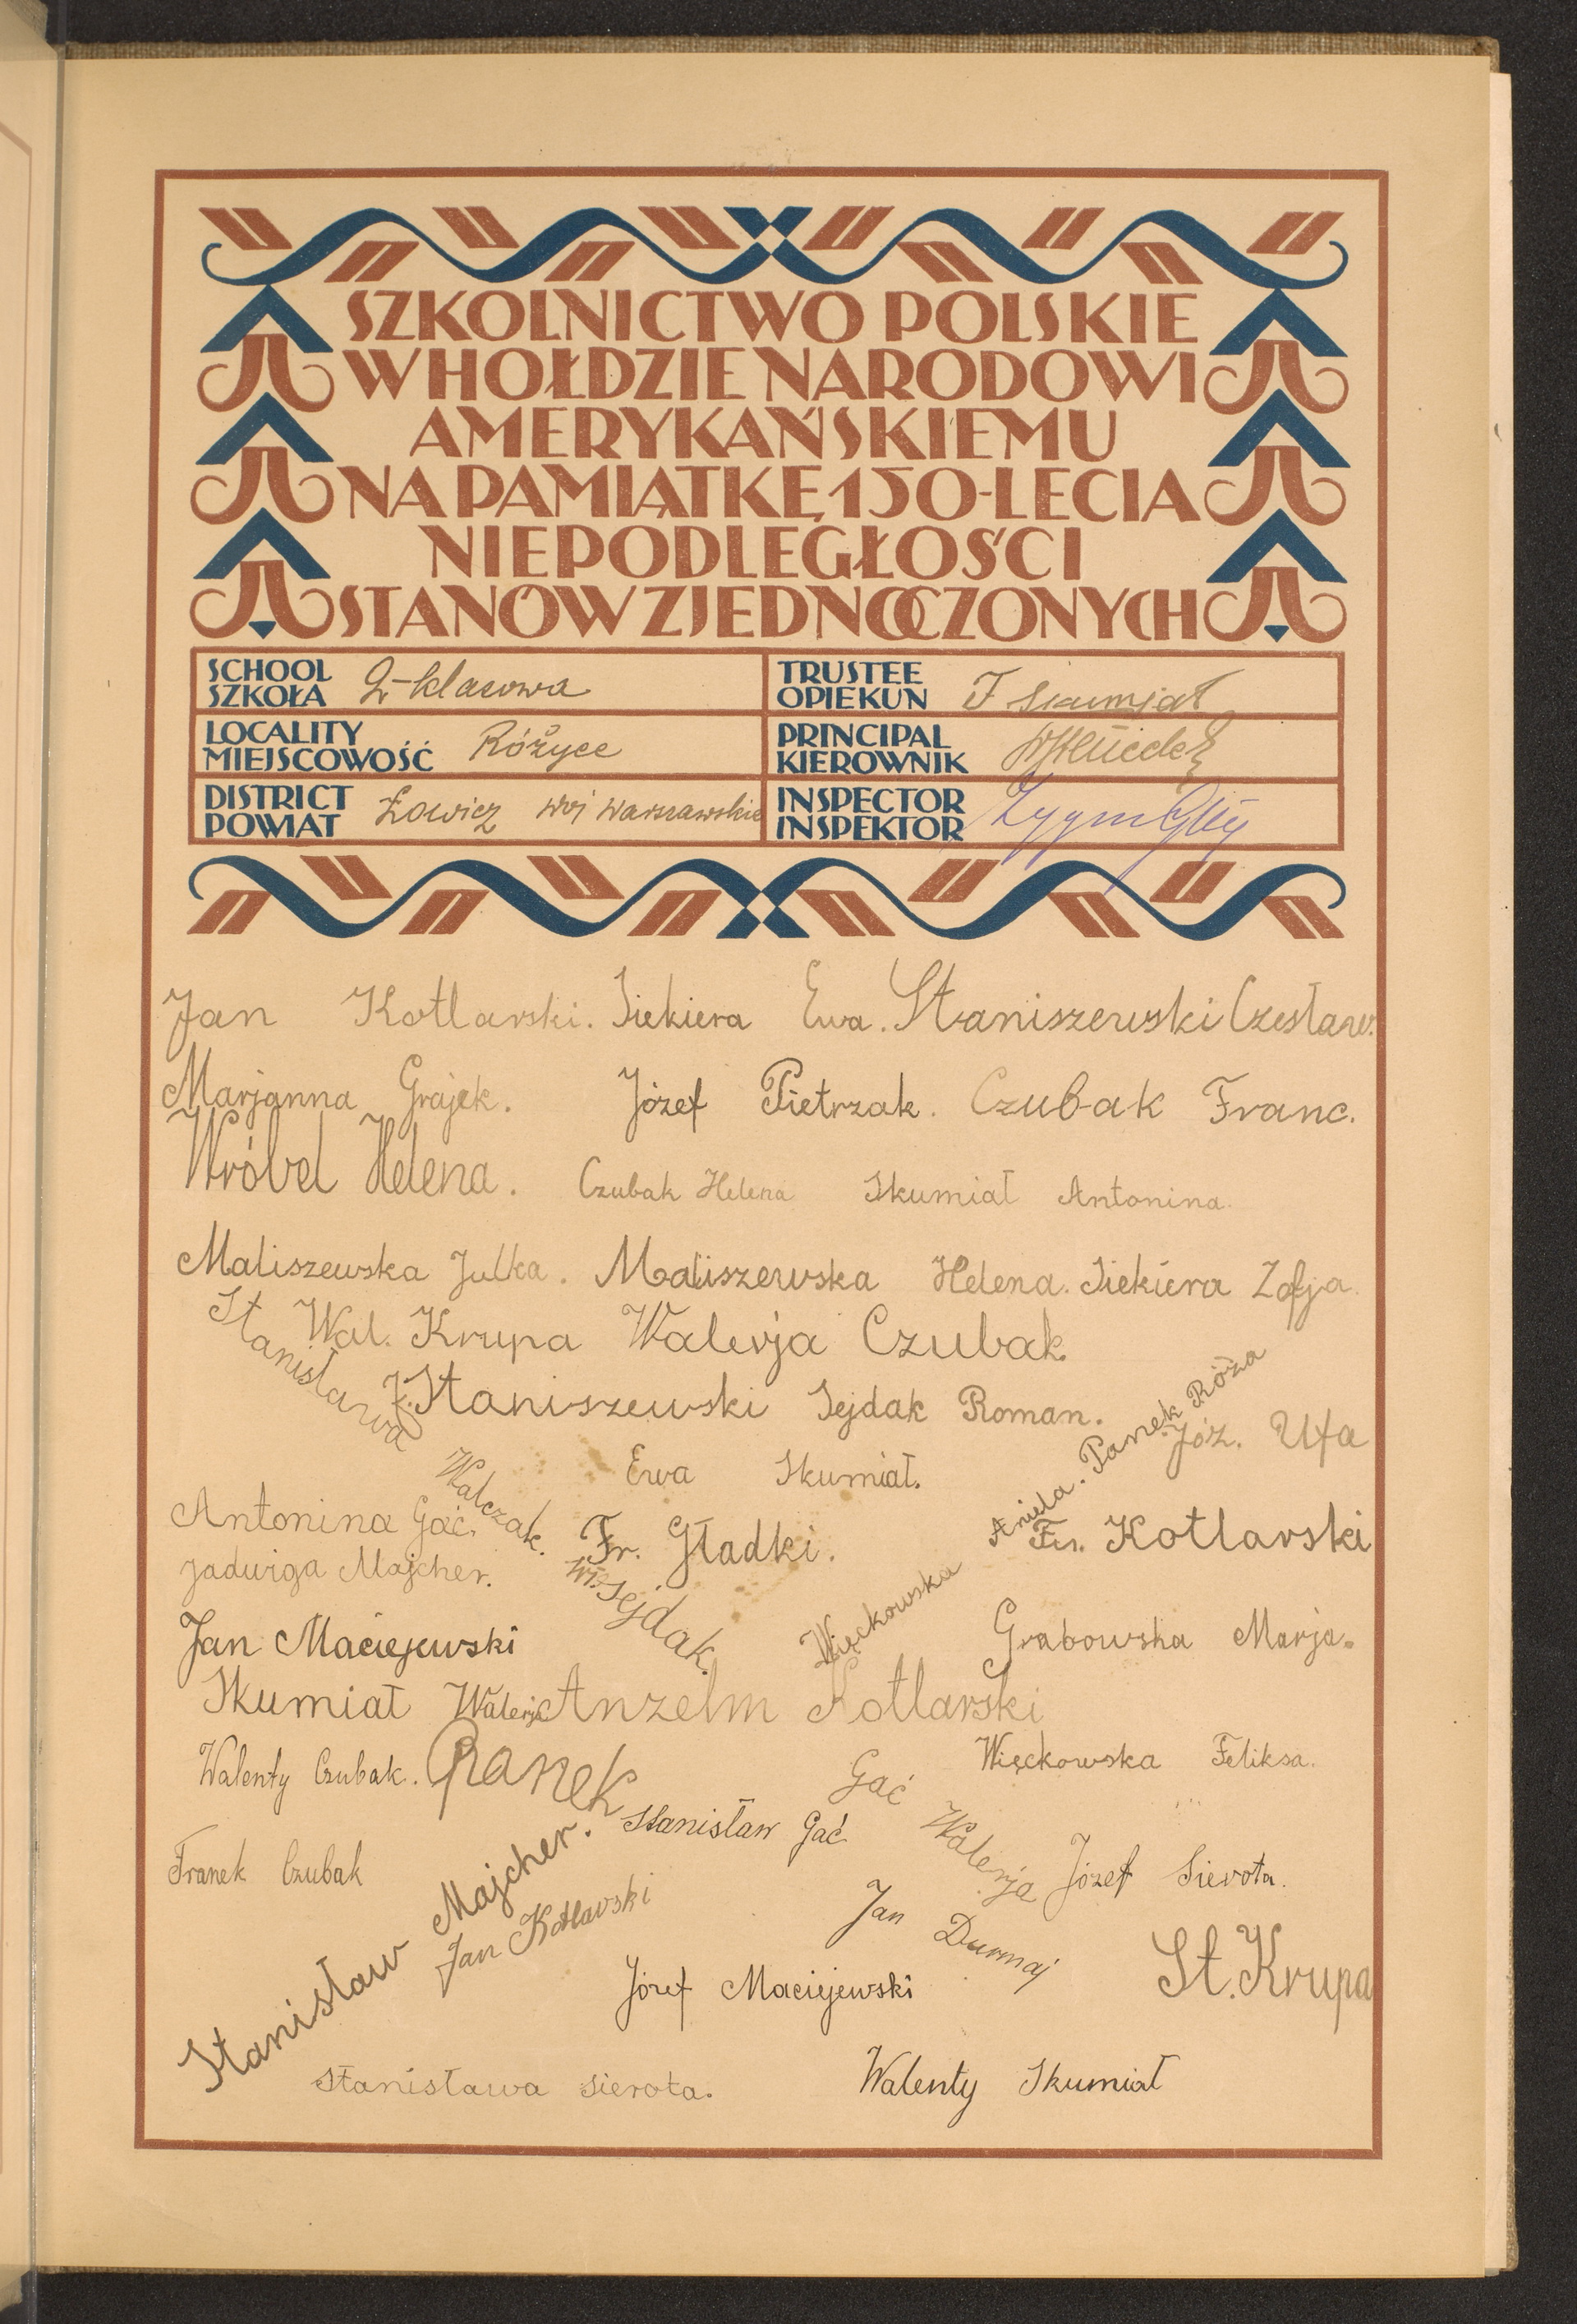 SZKOLNICTWO POLSKIE
W HOŁDZIE NARODOWI
AMERYKAŃSKIEMU
NA PAMIĄTKĘ 150-LECIA
NIEPODLEGŁOŚCI
STANÓW ZJEDNOCZONYCH
SCHOOL
SZKOŁA 2-klasowa
TRUSTEE
OPIEKUN J Skumiał
LOCALITY
MIEJSCOWOŚĆ Różyce
PRINCIPAL
KIEROWNIK
DISTRICT
POWIAT Łowicz woj warszawskie
INSPECTOR
INSPEKTOR
Jan Kotlarski. Siekiera Ewa. Staniszewski Czesław.
Marjanna Grajek. Józef Pietrzak. Czubak Franc.
Wróbel Helena. Czubak Helena Skumiał Antonina.
Maliszewska Julka. Maliszewska Helena. Siekiera Zofja.
Wal. Krupa Walerja Czubak.
Stanisława Walczak.
Z. Staniszewski Sejdak Roman.
Panek Róża
Józ. Ufa
Ewa Skumiał.
Antonina Gać. Fr. Gładki. Fr. Kotlarski
Jadwiga Majcher.
Wł. Sejdak.
Więckowska Aniela.
Jan Maciejewski Grabowska Marja.
Skumiał Walerja Anzelm Kotlarski
Walenty Czubak. Panek Więckowska Feliksa.
Gać Walerja
Stanisław Gać
Franek Czubak Józef Sierota.
Stanisław Majcher.
Jan Kotlarski
Jan Durmaj
Józef Maciejewski St. Krupa
Stanisława Sierota. Walenty Skumiał